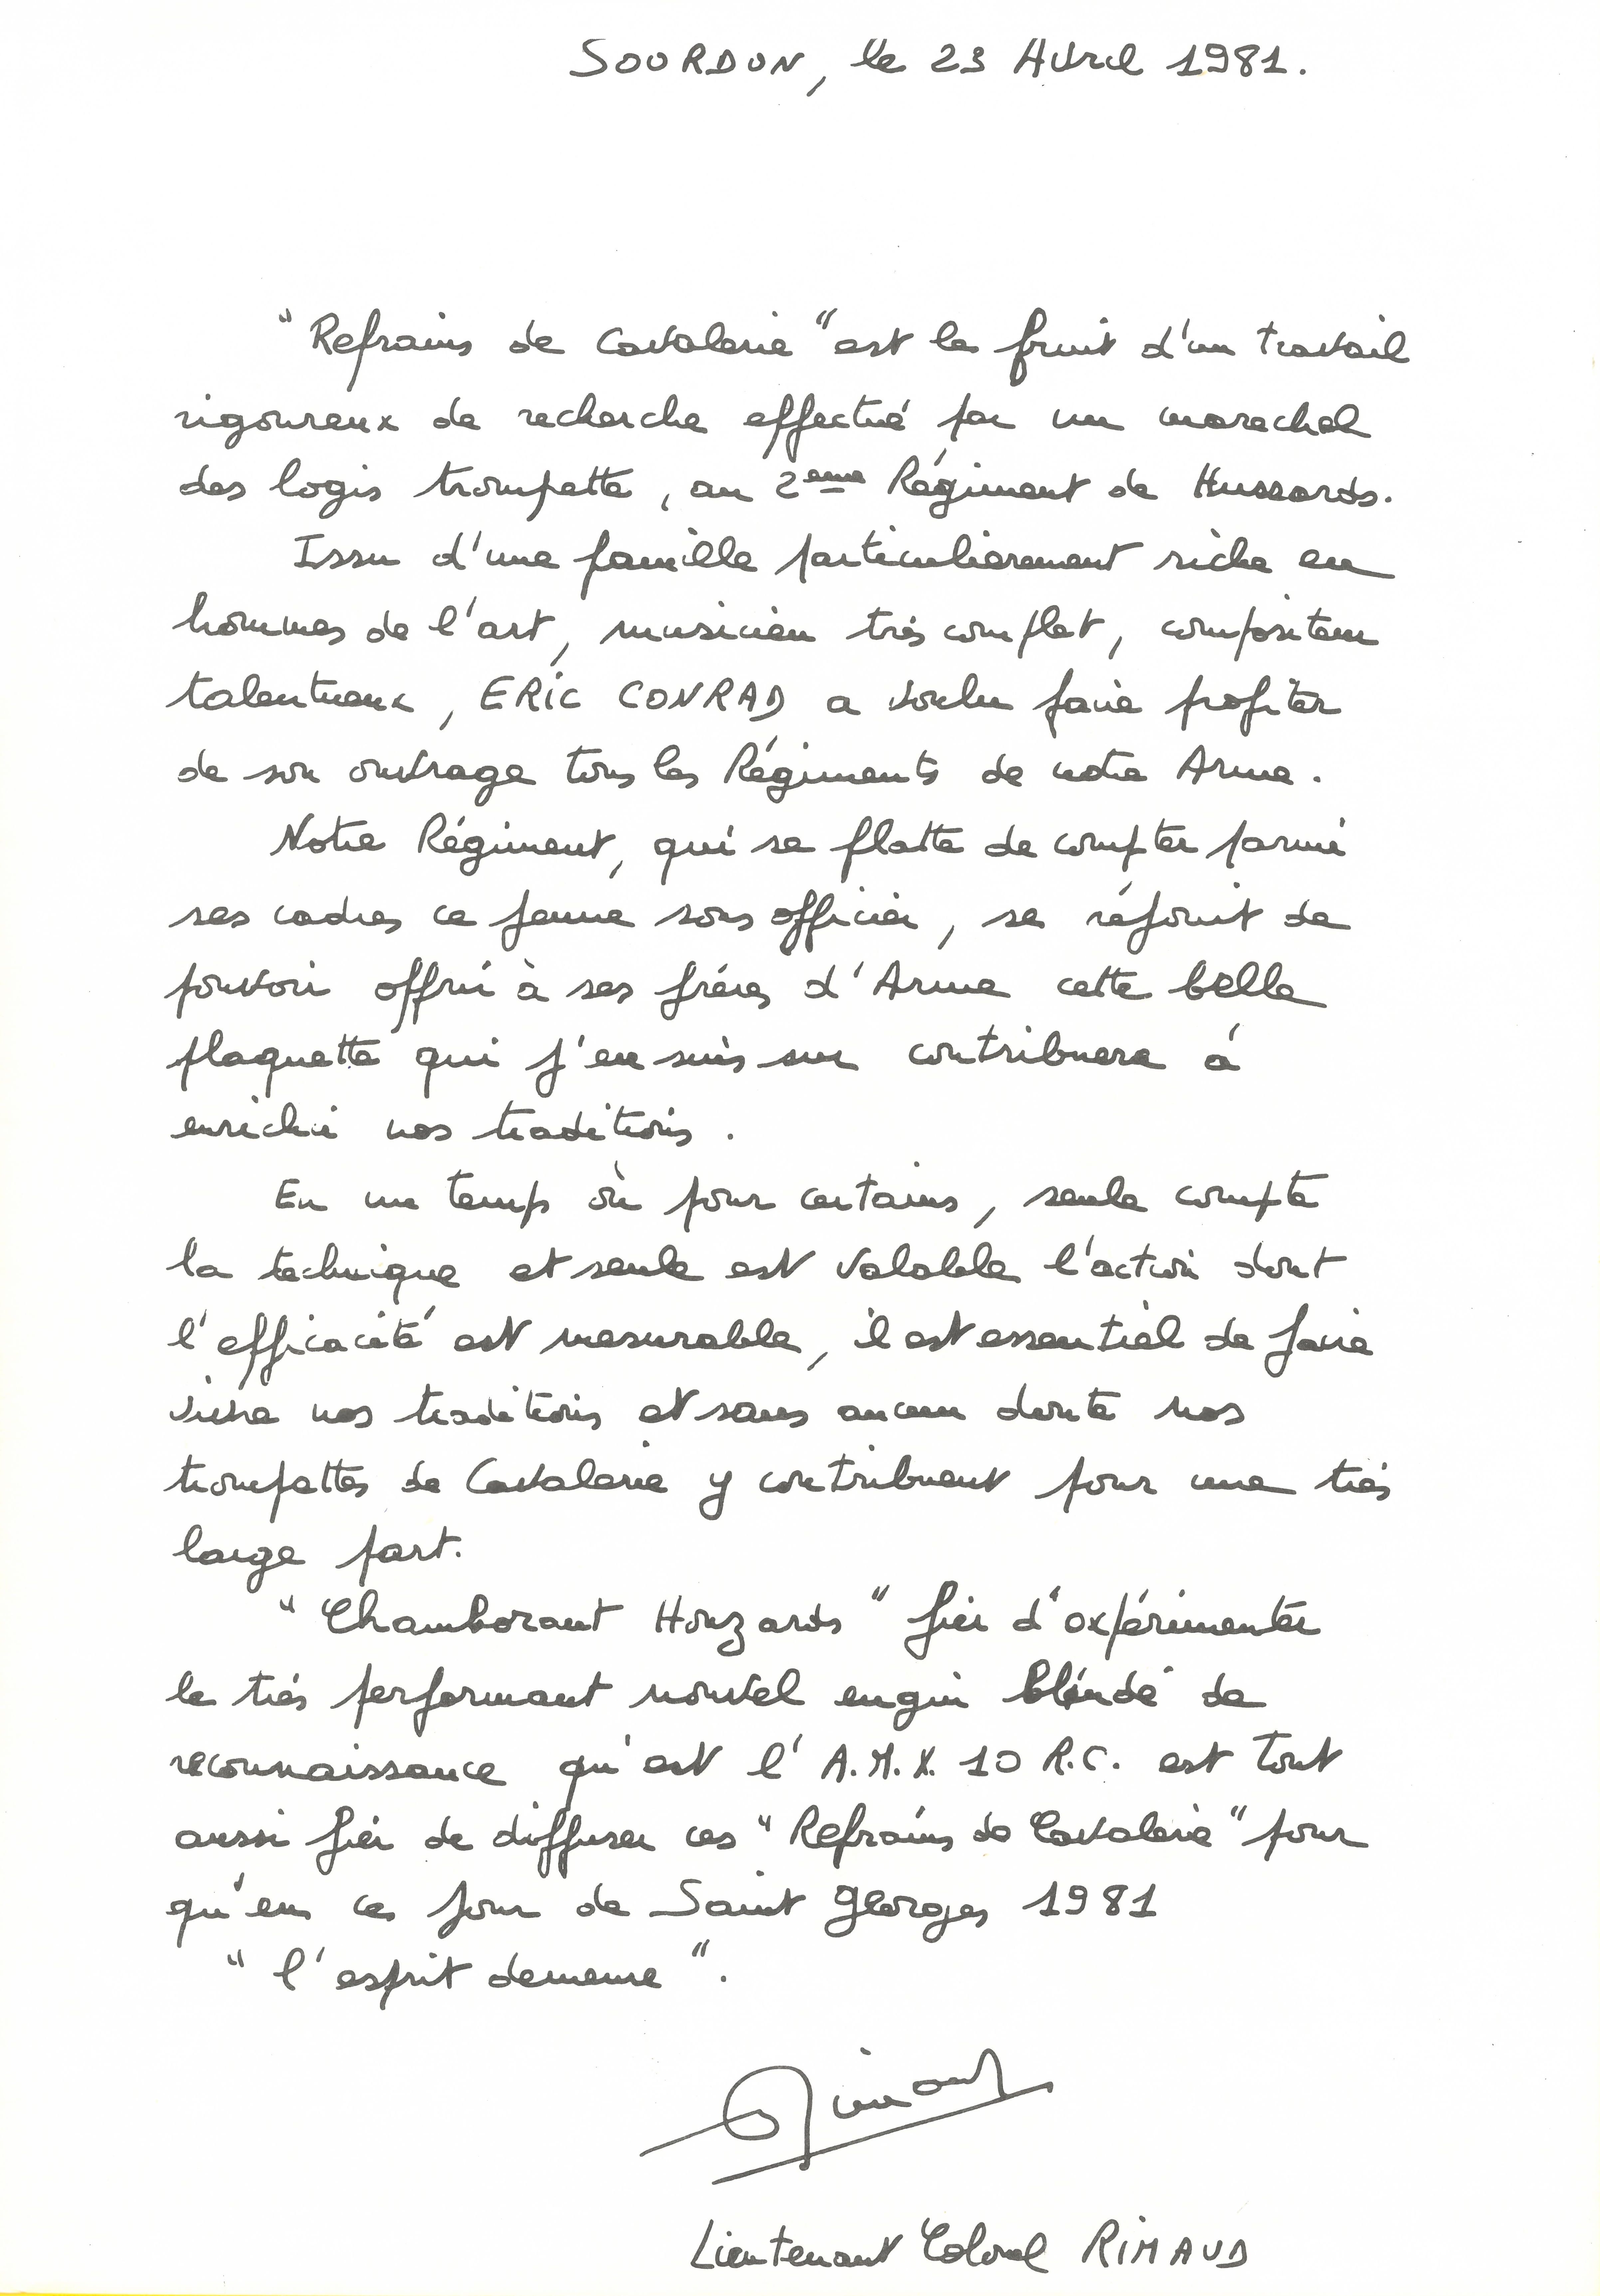 SOURDUN, le 23 Avril 1981.
"Refrains de Cavalerie" est le fruit d'un travail
rigoureux de recherche effectué par un marechal
des logis trompette, au 2ème Régiment de Hussards.
Issu d'une famille particulierement riche en
hommes de l'art, musicien très complet, compositeur
talentueux, ERIC CONRAD a voulu faire profiter
de son ouvrage tous les Régiments de notre Arme.
Notre Régiment, qui se flatte de compter parmi
ses cadres ce jeune sous officier, se réjouit de
pouvoir offrir à ses frères d'Arme cette belle
plaquette qui j'en suis sur contribuera à
enrichir nos traditions.
En un temps où pour certains, seule compte
la technique et seule est valable l'action dont
l'efficacité est mesurable, il est essentiel de faire
vivre nos traditions et sans aucun doute nos
trompettes de Cavalerie y contribuent pour une très
large part.
"Chamborant Houzards" fier d'expérimenter
le très performant nouvel engin blindé de
reconnaissance qu'est l'A.M.X. 10 R.C. est tout
aussi fier de diffuser ces "Refrains de Cavalerie" pour
qu'en ce jour de Saint Georges 1981
"l'esprit demeure".
Rimaud
Lieutenant Colonel RIMAUD